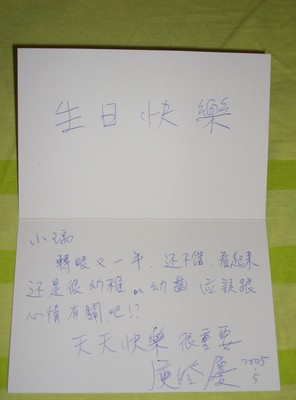 生日快樂
小瑞
轉眼又一年, 还不錯, 看起來
还是很幼稚 or 幼齒 应該跟
心情有關吧!?
天天快樂 很重要
慶
2005
.5